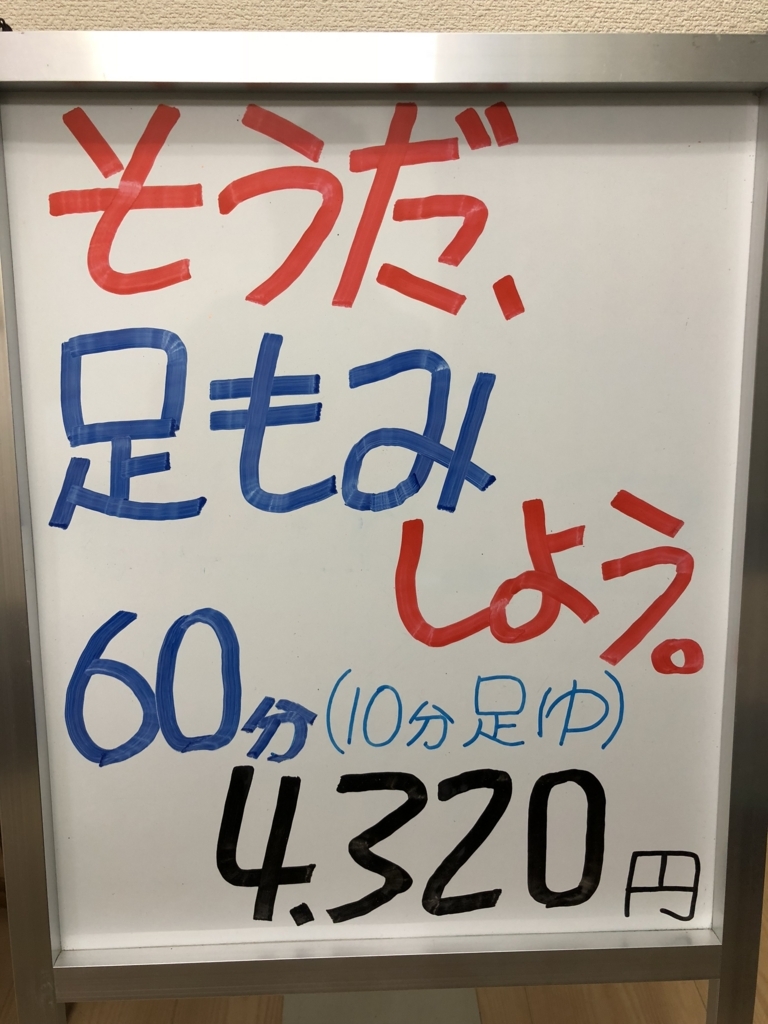 そうだ、
足もみ
しよう。
60分(10分足ゆ)
4.320円